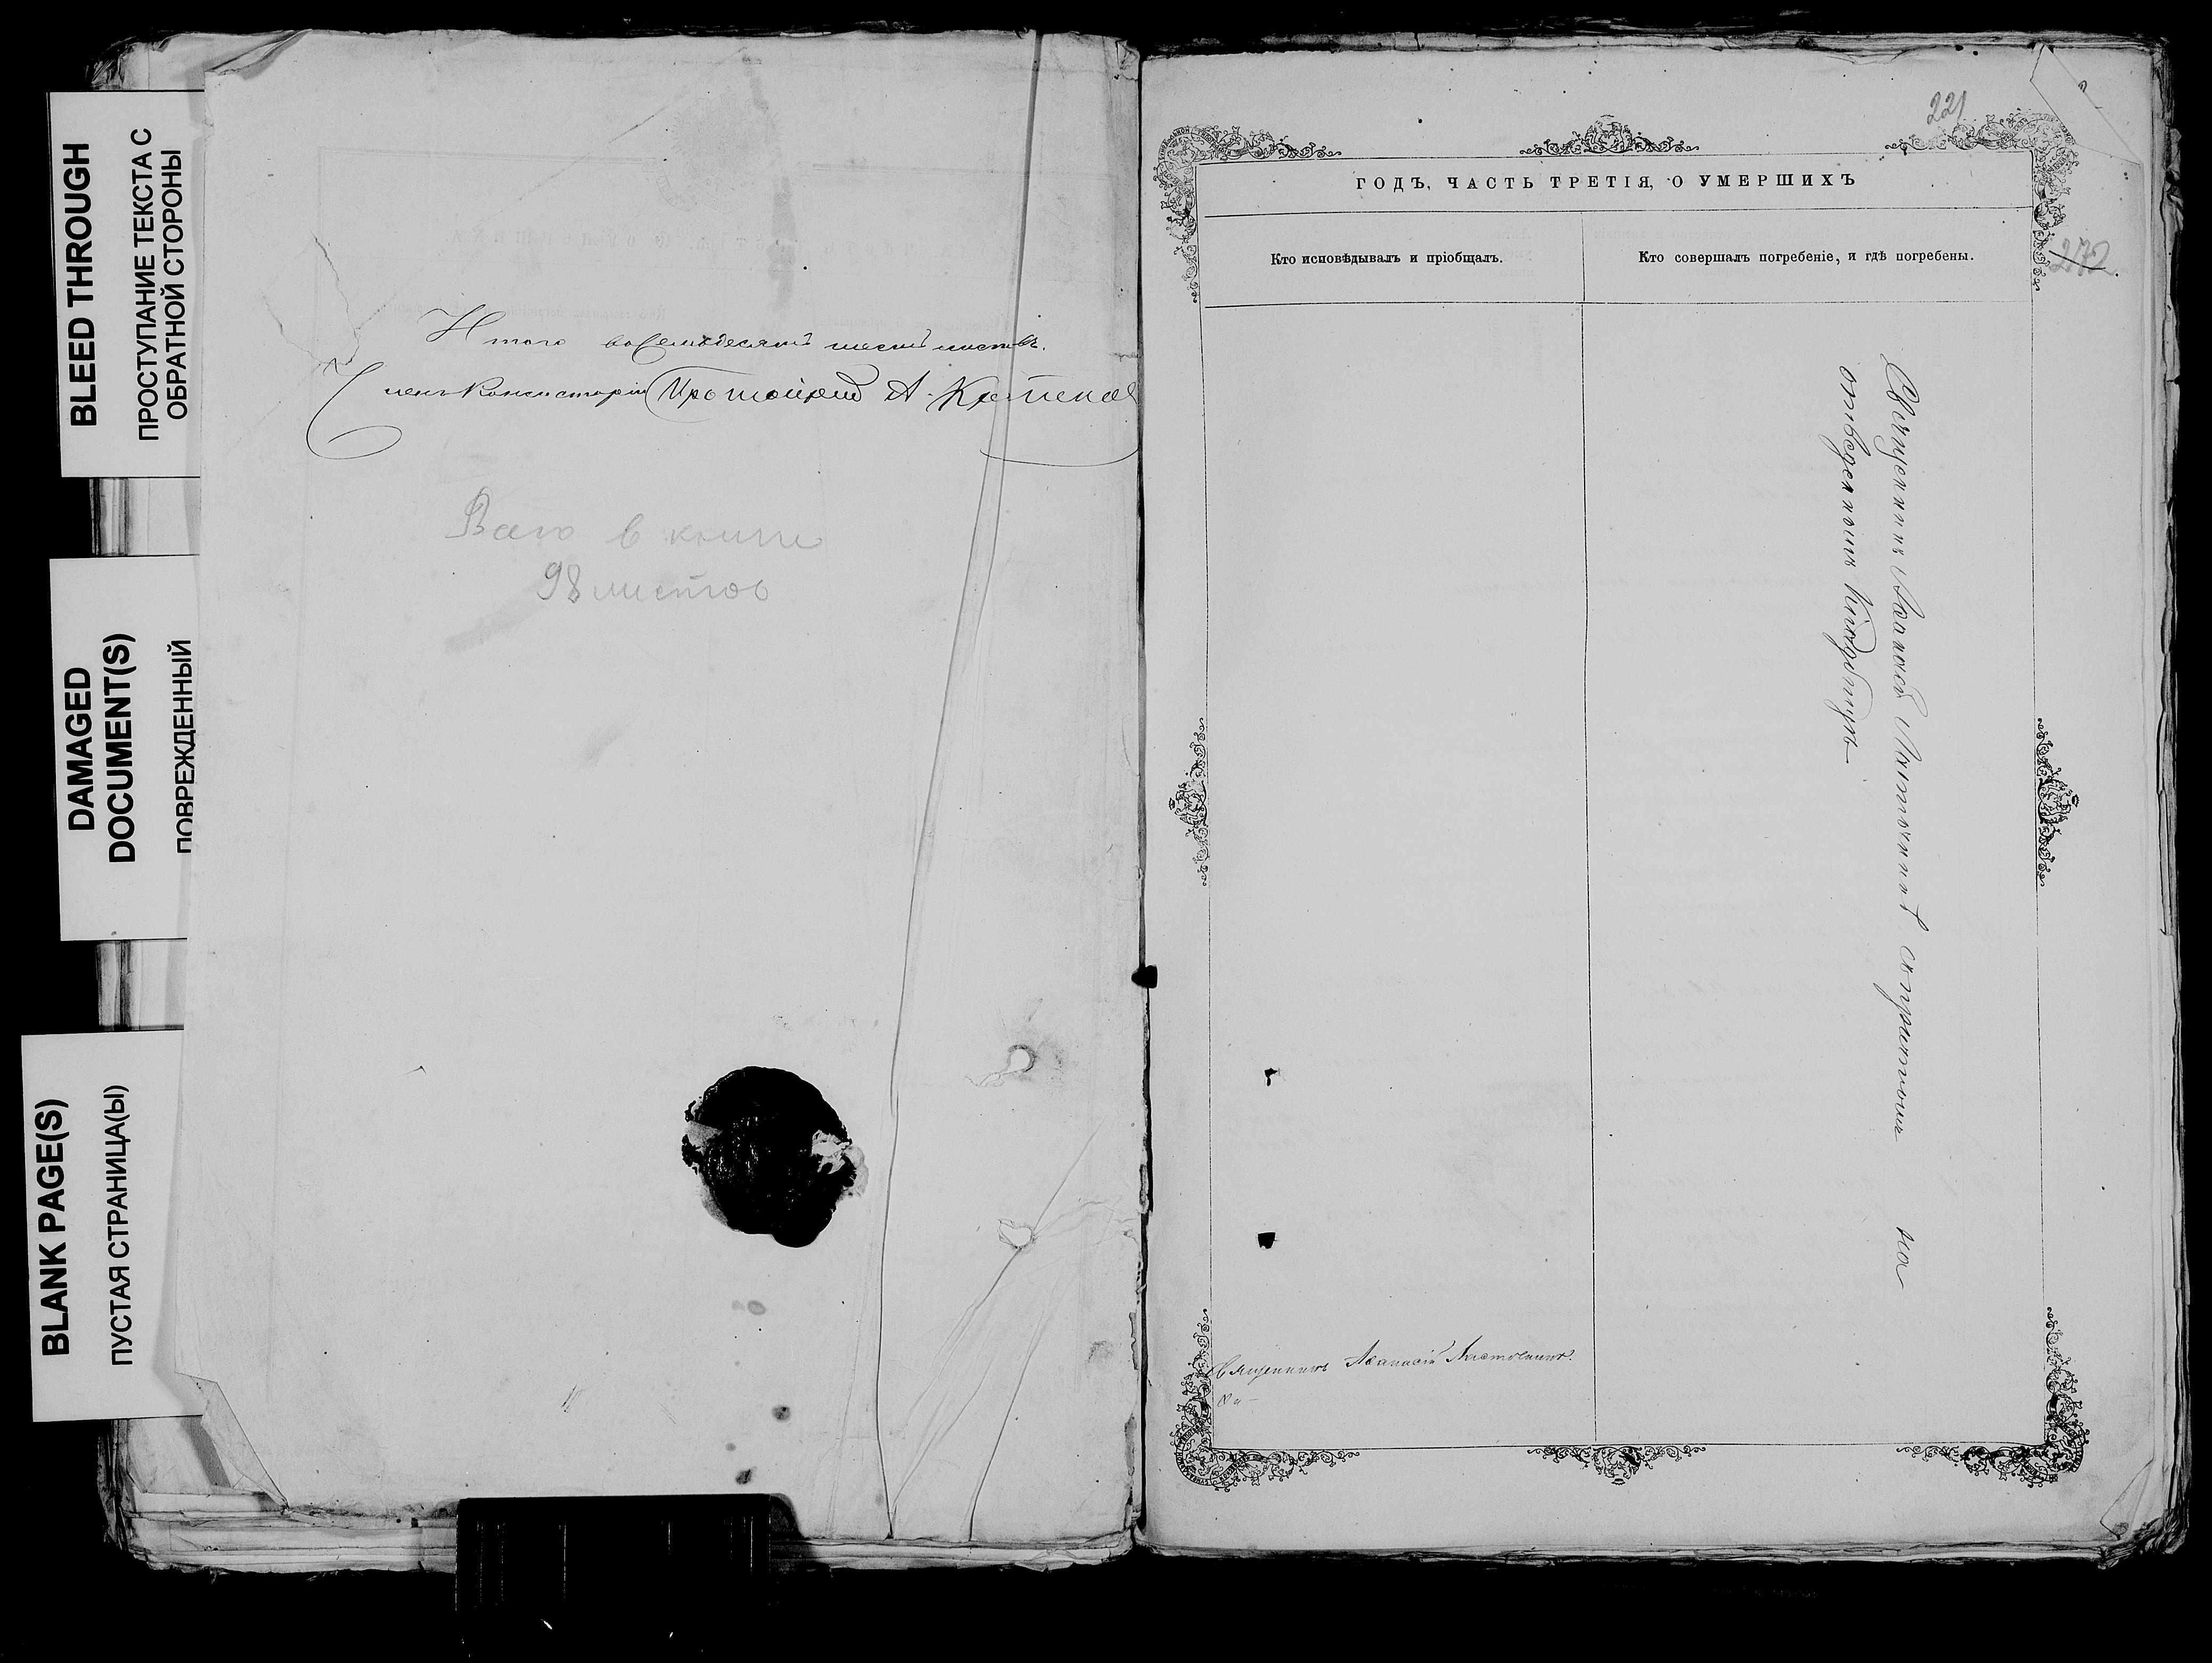 BLEED THROUGH
ПРОСТУПАНИЕ ТЕКСТА С
ОБРАТНОЙ СТОРОНЫ
DAMAGED
DOCUMENT(S)
ПОВРЕЖДЕННЫЙ
BLANK PAGE(S)
ПУСТАЯ СТРАНИЦА(Ы)
Итого восемьдесятъ шесть листовъ.
Членъ Консисторіи Протоіерей А.
Всего в книге
98 листов
221
ГОДЪ, ЧАСТЬ ТРЕТІЯ, О УМЕРШИХЪ
272
Кто исповѣдывалъ и пріобщалъ.
Кто совершалъ погребеніе, и гдѣ погребены.
Священникъ на
Священникъ Аѳанасій